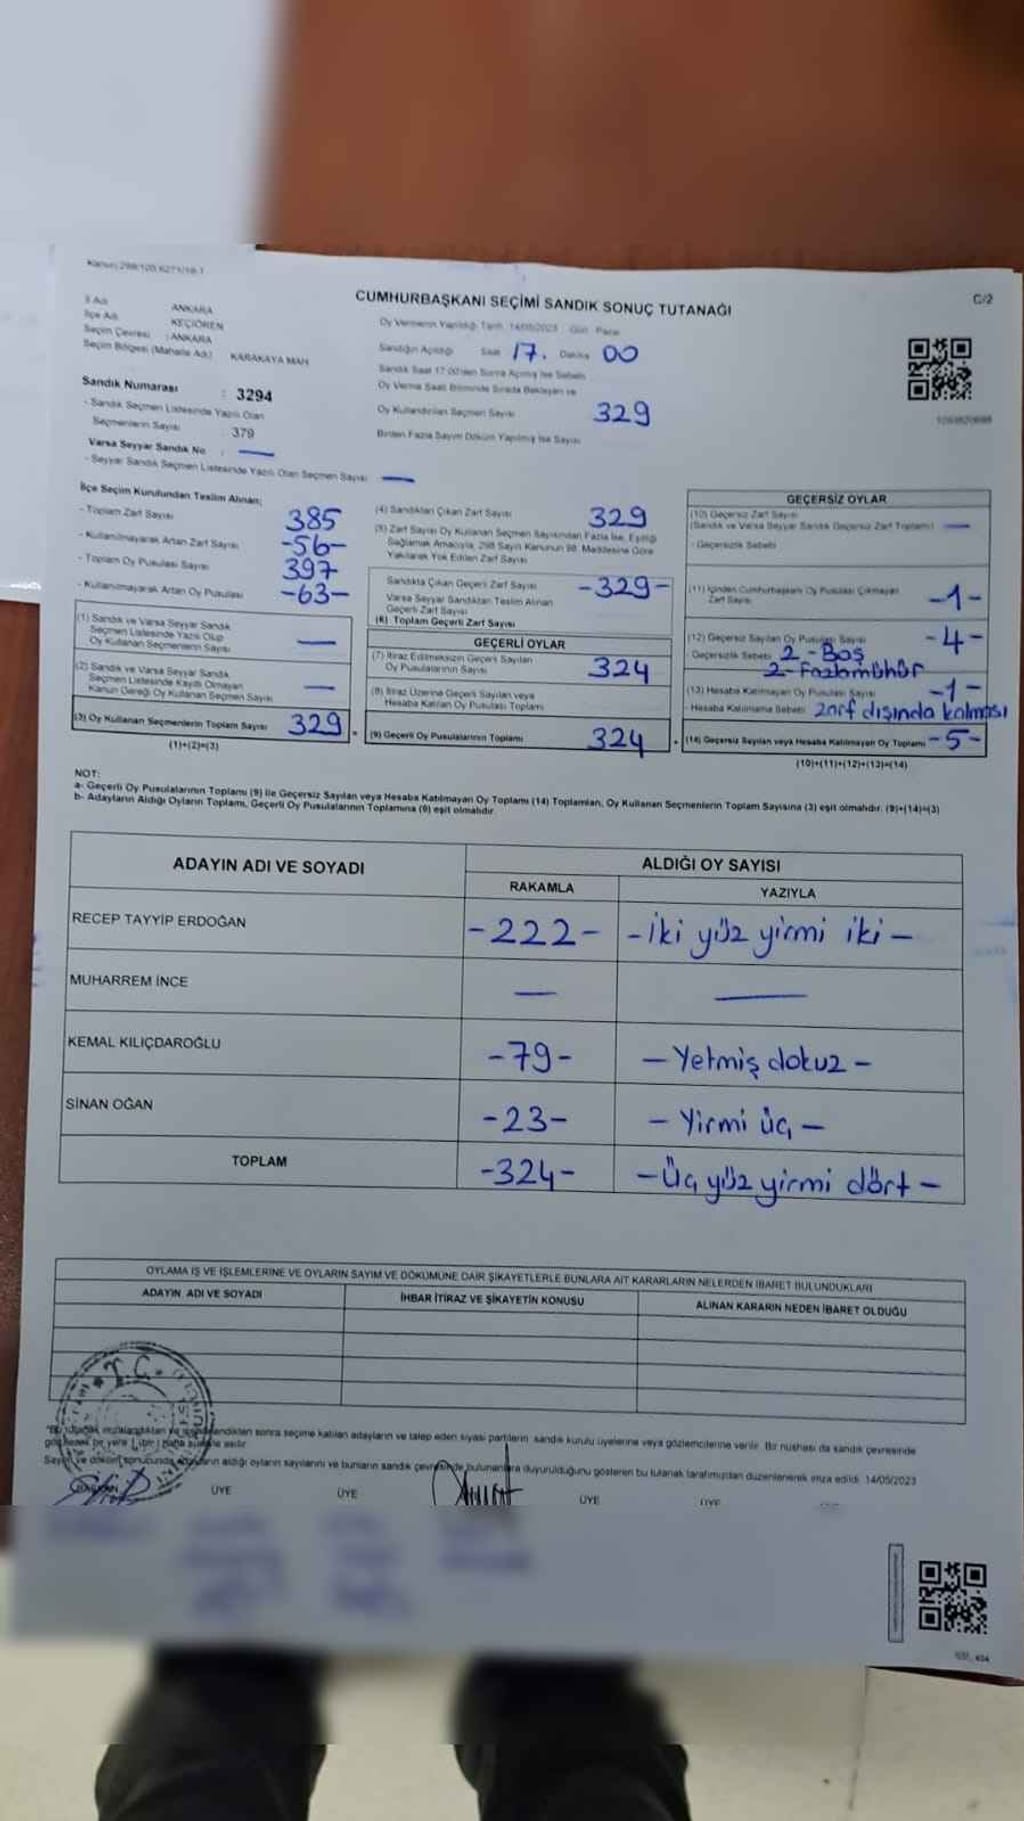 Kanun: 298/105 6271/18-1
C/2
CUMHURBAŞKANI SEÇİMİ SANDIK SONUÇ TUTANAĞI
İl Adı ANKARA
İlçe Adı KEÇİÖREN
Seçim Çevresi : ANKARA
Seçim Bölgesi (Mahalle Adı) KARAKAYA MAH
Sandık Numarası : 3294
- Sandık Seçmen Listesinde Yazılı Olan
Seçmenlerin Sayısı : 379
Varsa Seyyar Sandık No : —
- Seyyar Sandık Seçmen Listesinde Yazılı Olan Seçmen Sayısı —
Oy Vermenin Yapıldığı Tarih 14/05/2023 Gün Pazar
Sandığın Açıldığı Saat 17. Dakika 00
Sandık Saat 17.00'den Sonra Açılmış İse Sebebi
Oy Verme Saati Bitiminde Sırada Bekleyen ve
Oy Kullandırılan Seçmen Sayısı 329
Birden Fazla Sayım Döküm Yapılmış İse Sayısı
İlçe Seçim Kurulundan Teslim Alınan;
- Toplam Zarf Sayısı 385
- Kullanılmayarak Artan Zarf Sayısı -56-
- Toplam Oy Pusulası Sayısı 397
- Kullanılmayarak Artan Oy Pusulası -63-
(1) Sandık ve Varsa Seyyar Sandık
Seçmen Listesinde Yazılı Olup
Oy Kullanan Seçmenlerin Sayısı —
(2) Sandık ve Varsa Seyyar Sandık
Seçmen Listesinde Kayıtlı Olmayan
Kanun Gereği Oy Kullanan Seçmen Sayısı —
(3) Oy Kullanan Seçmenlerin Toplam Sayısı 329
(1)+(2)=(3)
(4) Sandıktan Çıkan Zarf Sayısı 329
(5) Zarf Sayısı Oy Kullanan Seçmen Sayısından Fazla İse, Eşitliği
Sağlamak Amacıyla, 298 Sayılı Kanunun 98. Maddesine Göre
Yakılarak Yok Edilen Zarf Sayısı
Sandıkta Çıkan Geçerli Zarf Sayısı -329-
Varsa Seyyar Sandıktan Teslim Alınan
Geçerli Zarf Sayısı
(6) Toplam Geçerli Zarf Sayısı
GEÇERLİ OYLAR
(7) İtiraz Edilmeksizin Geçerli Sayılan
Oy Pusulalarının Sayısı 324
(8) İtiraz Üzerine Geçerli Sayılan veya
Hesaba Katılan Oy Pusulası Toplamı
(9) Geçerli Oy Pusulalarının Toplamı 324
GEÇERSİZ OYLAR
(10) Geçersiz Zarf Sayısı
(Sandık ve Varsa Seyyar Sandık Geçersiz Zarf Toplamı) —
- Geçersizlik Sebebi
(11) İçinden Cumhurbaşkanı Oy Pusulası Çıkmayan
Zarf Sayısı -1-
(12) Geçersiz Sayılan Oy Pusulası Sayısı -4-
Geçersizlik Sebebi 2-Boş
2-Fazla mühür
(13) Hesaba Katılmayan Oy Pusulası Sayısı -1-
- Hesaba Katılmama Sebebi Zarf dışında kalması
(14) Geçersiz Sayılan veya Hesaba Katılmayan Oy Toplamı -5-
(10)+(11)+(12)+(13)=(14)
NOT:
a- Geçerli Oy Pusulalarının Toplamı (9) ile Geçersiz Sayılan veya Hesaba Katılmayan Oy Toplamı (14) Toplamları, Oy Kullanan Seçmenlerin Toplam Sayısına (3) eşit olmalıdır. (9)+(14)=(3)
b- Adayların Aldığı Oyların Toplamı, Geçerli Oy Pusulalarının Toplamına (9) eşit olmalıdır.
ADAYIN ADI VE SOYADI ALDIĞI OY SAYISI
RAKAMLA YAZIYLA
RECEP TAYYİP ERDOĞAN -222- -iki yüz yirmi iki-
MUHARREM İNCE — —
KEMAL KILIÇDAROĞLU -79- -Yetmiş dokuz-
SİNAN OĞAN -23- -Yirmi üç-
TOPLAM -324- -Üç yüz yirmi dört-
OYLAMA İŞ VE İŞLEMLERİNE VE OYLARIN SAYIM VE DÖKÜMÜNE DAİR ŞİKAYETLERLE BUNLARA AİT KARARLARIN NELERDEN İBARET BULUNDUKLARI
ADAYIN ADI VE SOYADI İHBAR İTİRAZ VE ŞİKAYETİN KONUSU ALINAN KARARIN NEDEN İBARET OLDUĞU
T.C.
sonra seçime katılan adayların ve talep eden siyasi partilerin sandık kurulu üyelerine veya gözlemcilerine verilir. Bir nüshası da sandık çevresinde
aldığı oyların sayılarını ve bunların sandık çevresinde bulunanlara duyurulduğunu gösteren bu tutanak tarafımızdan düzenlenerek imza edildi. 14/05/2023
BAŞKAN ÜYE ÜYE ÜYE ÜYE